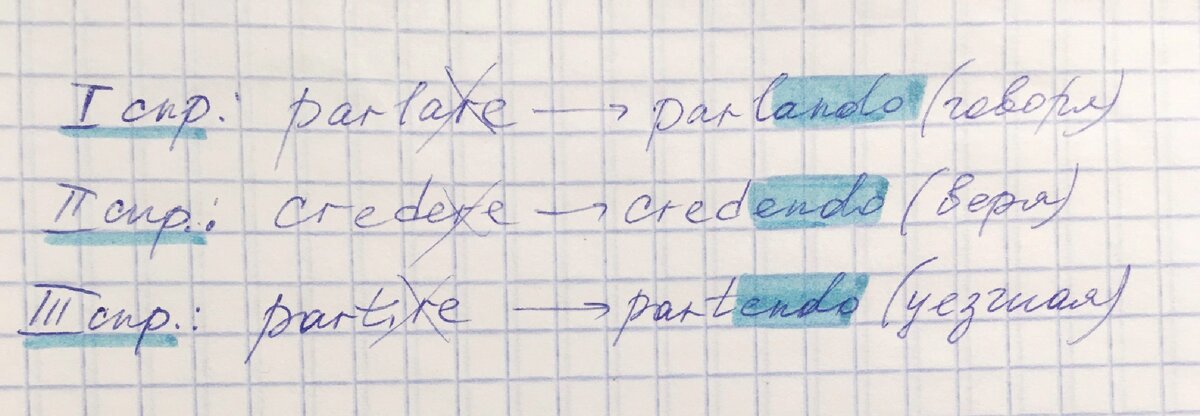 I спр.: parlare → parlando (говоря)
II спр.: credere → credendo (веря)
III спр.: partire → partendo (уезжая)